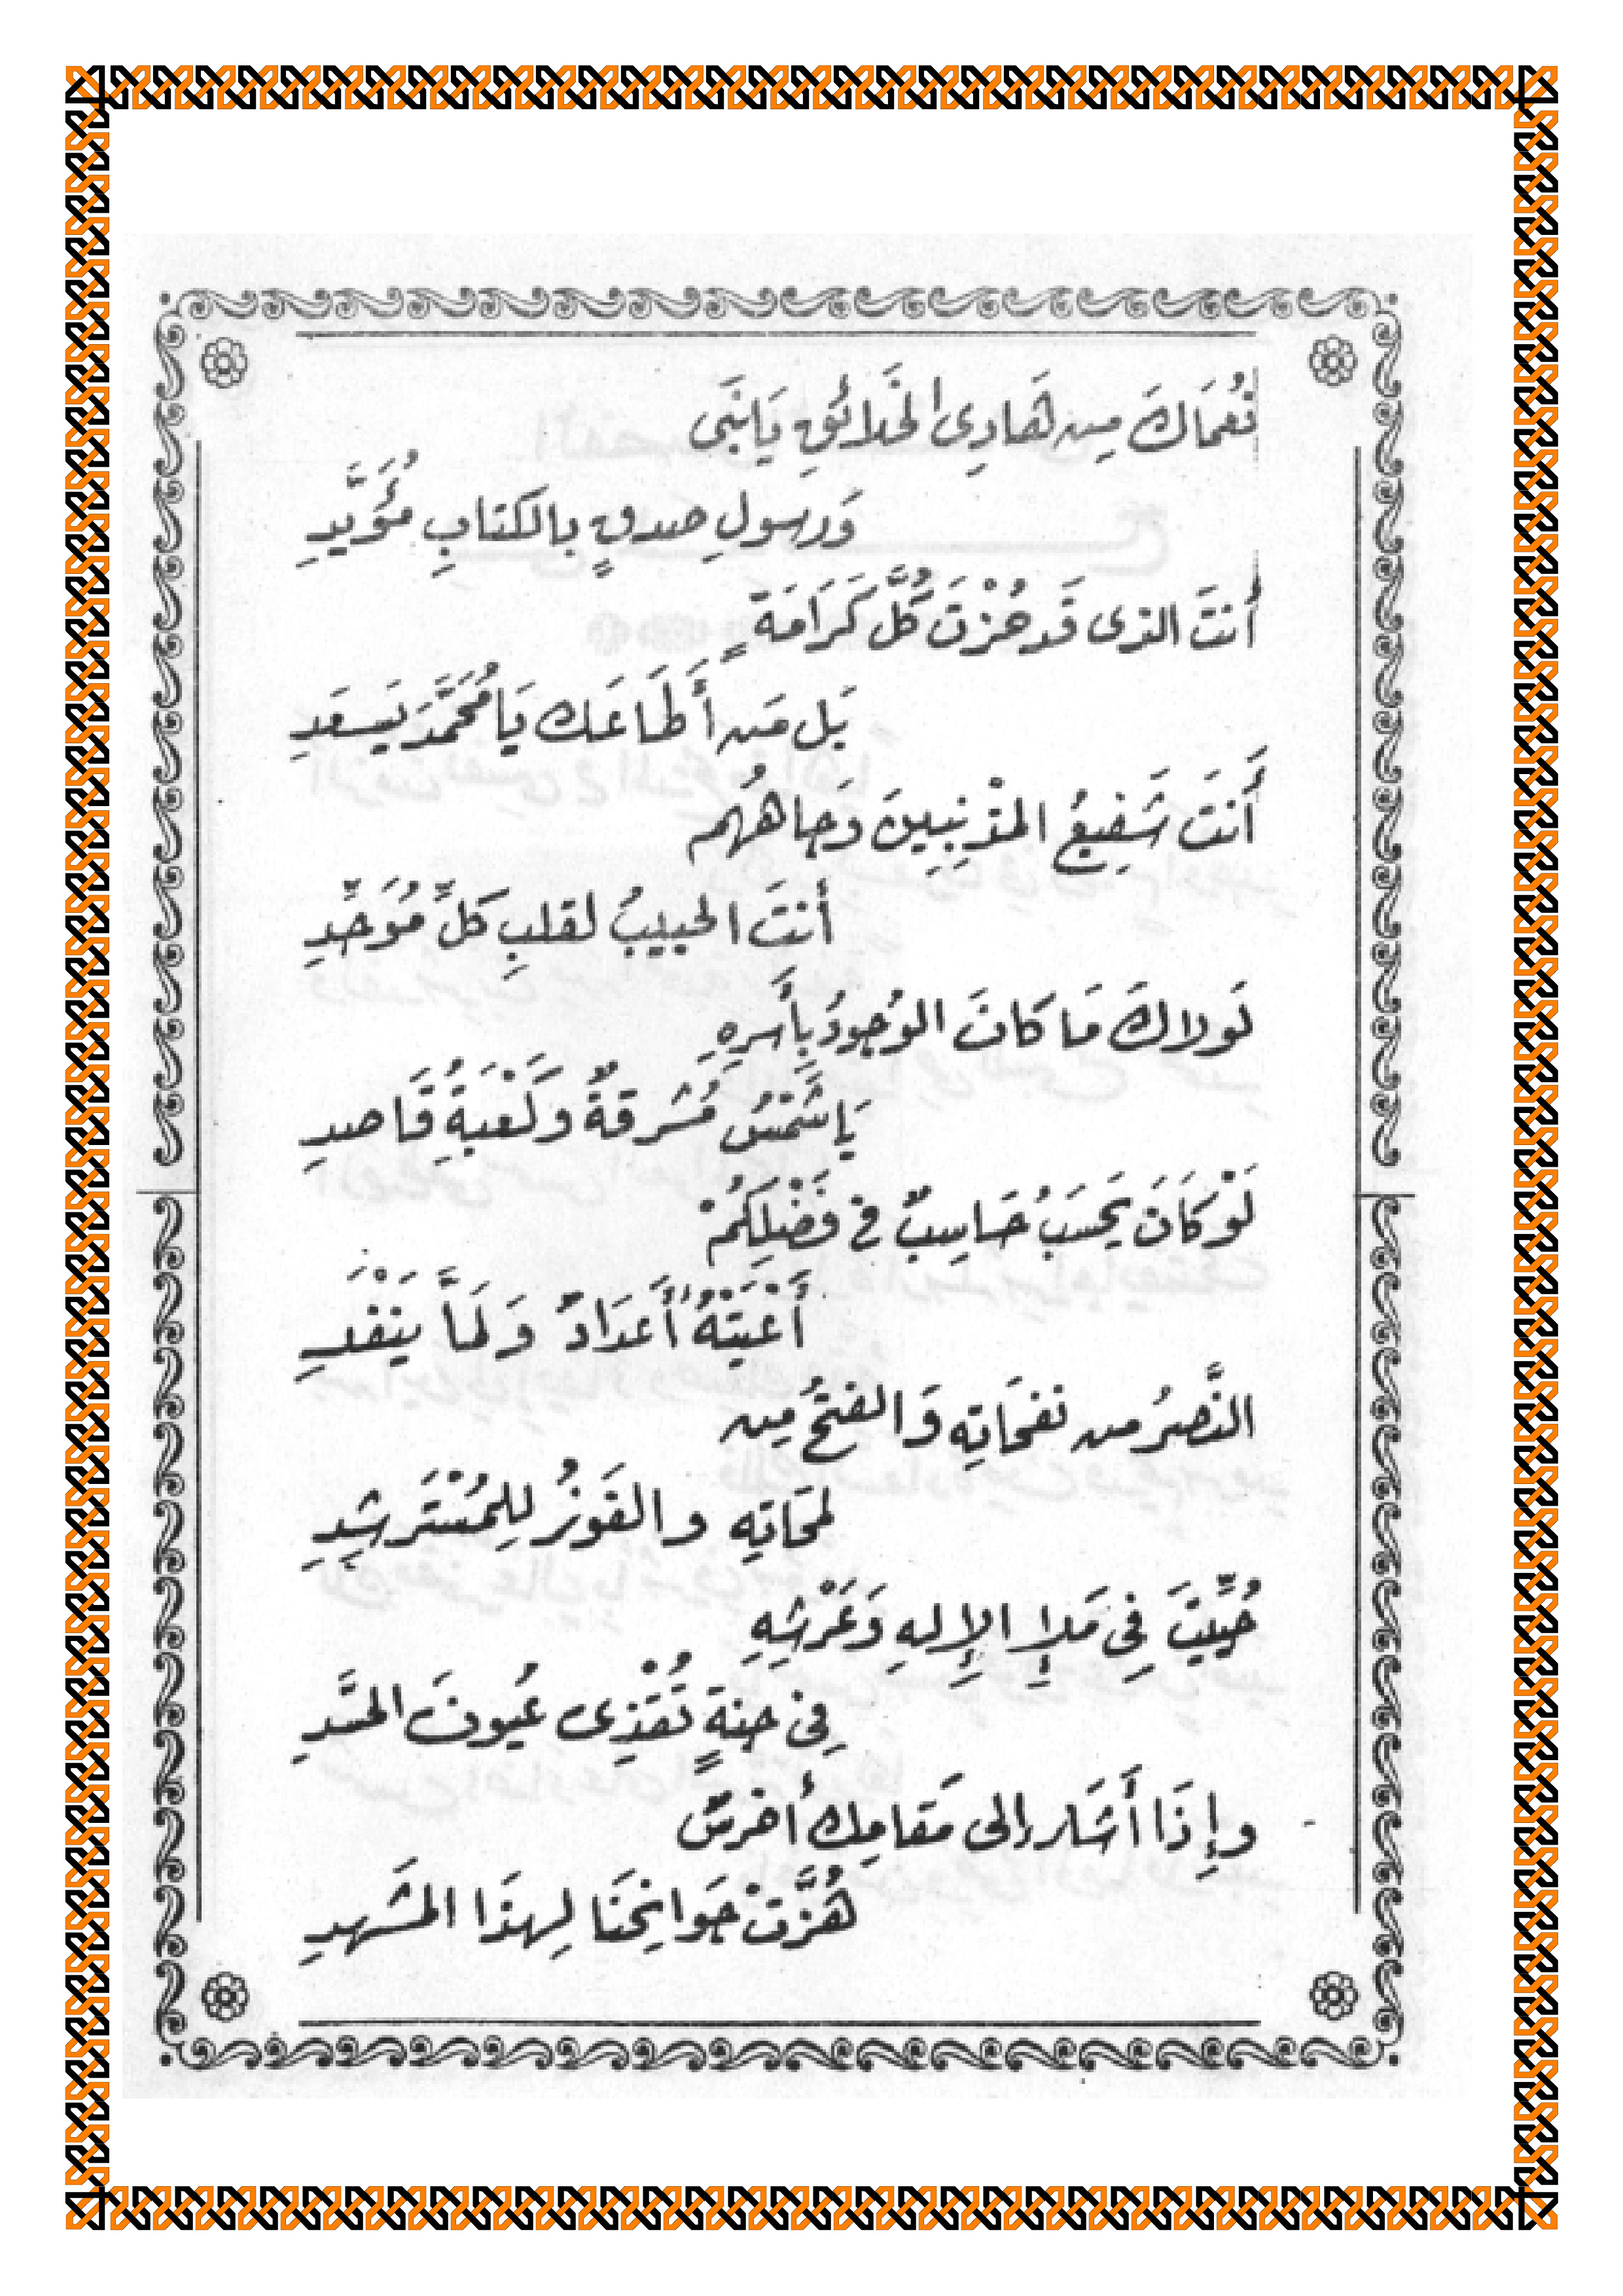 نُعمَاكَ مِن هَادِى الخَلائِقِ يَا نَبَى
وَرسولِ صدقٍ بالكتابِ مُؤَيَّدِ
أَنتَ الذى قَد حُزْتَ كُلَّ كَرَامَةٍ
بَل مَن أَطَاعَك يَا مُحَمَّدَ يَسعَدِ
أَنتَ شَفِيعُ المذْنِبِينَ وَجاهُهُم
أَنتَ الحبيبُ لقلبِ كلِّ مُوَحِّدِ
لَولاكَ مَا كانَ الوُجودُ بِأَسرِهِ
يَا شَمْسُ مُشرقةٌ وكَعْبَةُ قَاصدِ
لَوْ كَانَ يَحسَبُ حَاسِبٌ فى فَضْلِكُمْ
أَعْيَتْهُ أَعدَادٌ وَلمَّا يَنْفَدِ
النَّصرُ من نفحَاتِهِ وَالفتحُ مِن
لمحَاتِهِ والفَوزُ لِلمُسْتَرشِدِ
حُيِّيتَ فِى مَلإِ الإِلهِ وَعَرْشِهِ
فِى جنةٍ تُقْذِى عُيونَ الحسَّدِ
وإِذَا أَشَار إلى مَقامِك أخرسٌ
هُزَّتْ جَوانِحُنَا لِهذَا المشَهدِ